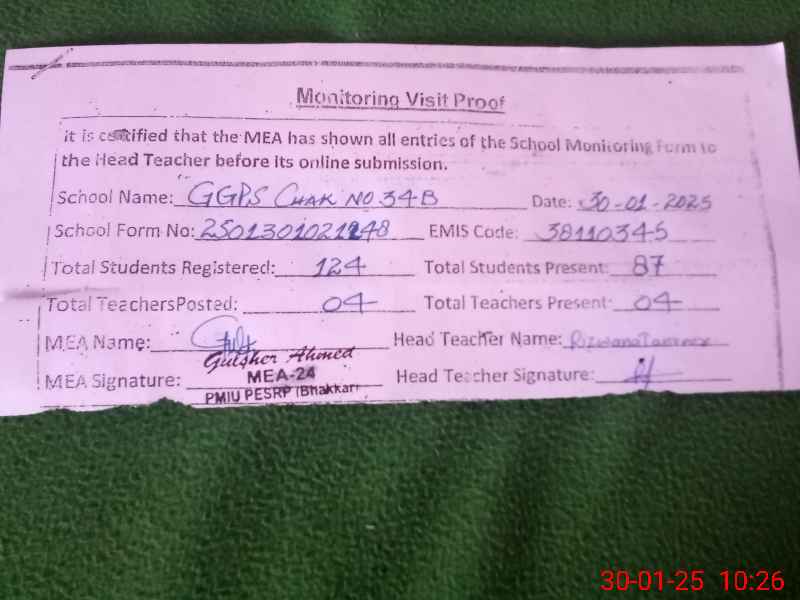 Monitoring Visit Proof
it is certified that the MEA has shown all entries of the School Monitoring Form to
the Head Teacher before its online submission.
School Name: GGPS CHAK NO 34-B Date: 30-01-2025
School Form No: 2501301021248 EMIS Code: 38110345
Total Students Registered: 124 Total Students Present: 87
Total TeachersPosted: 04 Total Teachers Present: 04
MEA Name: Head Teacher Name: Rizwana
Gulsher Ahmed
MEA Signature: MEA-24 Head Teacher Signature:
PMIU PESRP (Bhakkar)
30-01-25 10:26